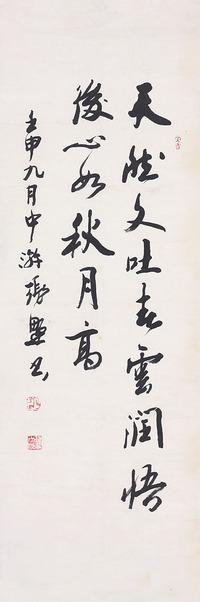 天然文吐春雲潤悟
後心如秋月高
壬申九月中游張書